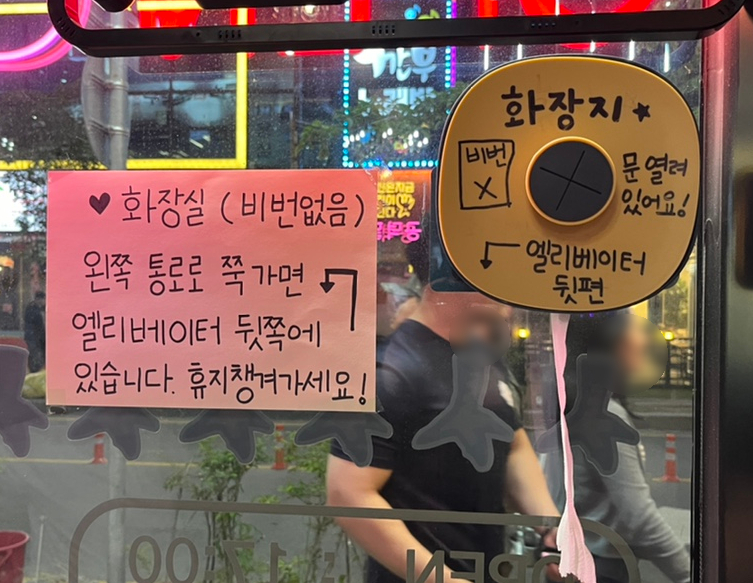 ♥ 화장실 (비번없음)
왼쪽 통로로 쭉 가면
엘리베이터 뒷쪽에
있습니다. 휴지챙겨가세요!
화장지★
비번
X
문 열려
있어요!
엘리베이터
뒷편
OPEN : 17:00